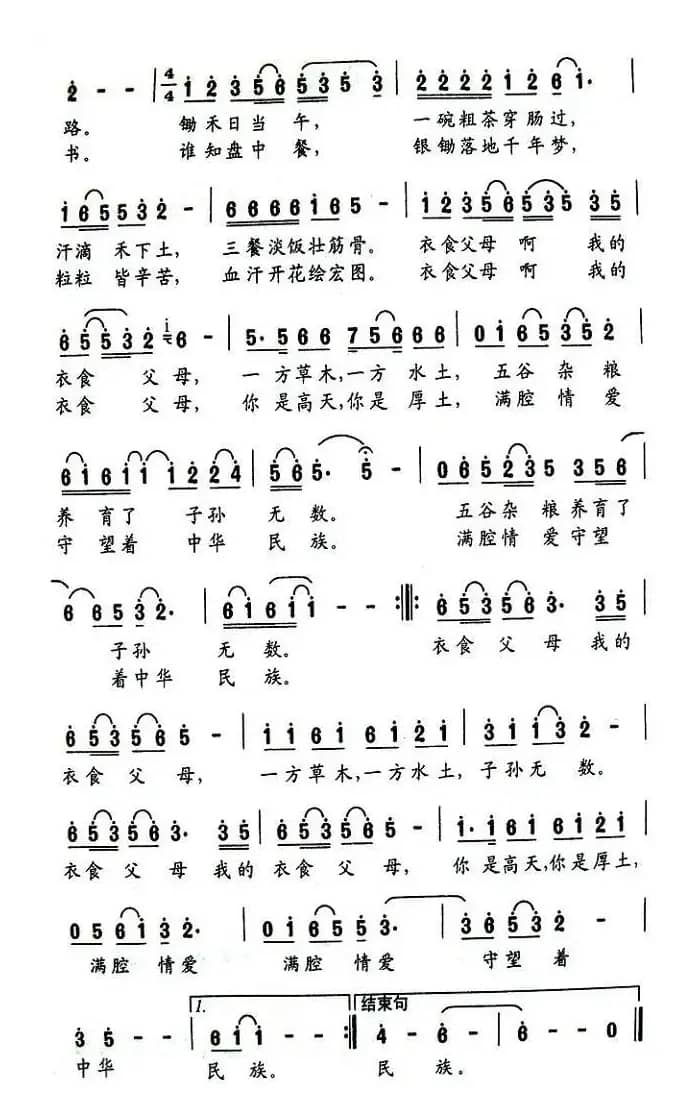 2 - - | 4/4 1 2 3 5 6 5 3 5 3 | 2 2 2 2 1 2 6 1· |
路。 锄禾日当 午， 一碗粗茶穿肠过，
书。 谁知盘中 餐， 银锄落地千年梦，
1 6 5 5 3 2 - | 6 6 6 6 1 6 5 - | 1 2 3 5 6 5 3 5 3 5 |
汗滴 禾下土， 三餐淡饭壮筋骨。 衣食父母 啊 我的
粒粒 皆辛苦， 血汗开花绘宏图。 衣食父母 啊 我的
6 5 5 3 2 i 6 - | 5· 5 6 6 7 5 6 6 6 | 0 1 6 5 3 5 2 |
衣食 父母， 一方草木,一方 水土， 五谷 杂粮
衣食 父母， 你是高天,你是 厚土， 满腔 情爱
6 1 6 1 1 1 2 2 4 | 5 6 5· 5 - | 0 6 5 2 3 5 3 5 6 |
养 育了 子孙 无数。 五谷杂 粮养育了
守 望着 中华 民族。 满腔情 爱守望
6 6 5 3 2· | 6 1 6 1 1 - - :||: 6 5 3 5 6 3· 3 5 |
子孙 无 数。 衣食 父 母我的
着中华 民 族。
6 5 3 5 6 6 5 - | 1 1 6 1 6 1 2 1 | 3 1 1 3 2 - |
衣食 父 母， 一方草木,一方水土，子孙无 数。
6 5 3 5 6 3· 3 5 | 6 5 3 5 6 6 5 - | 1· 1 6 1 6 1 2 1 |
衣食 父 母我的 衣食 父 母， 你 是高天,你是厚土，
0 5 6 1 3 2· | 0 1 6 5 5 3· | 3 6 5 3 2 - |
满腔 情爱 满腔 情爱 守望 着
1. 结束句
3 5 - - | 6 1 1 - - :|| 4 - 6 - | 6 - - 0 ||
中华 民 族。 民 族。